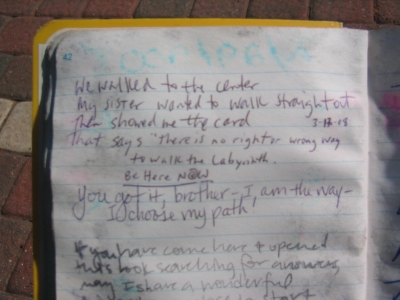 We walked to the center
My sister wanted to walk straight out
Then showed me the card
3-18-08
that says "there is no right or wrong way
to walk the Labyrinth.
Be Here NOW
You got it, brother - I am the way -
I choose my path
If you have come here & opened
this book searching for answers,
may I share a wonderful